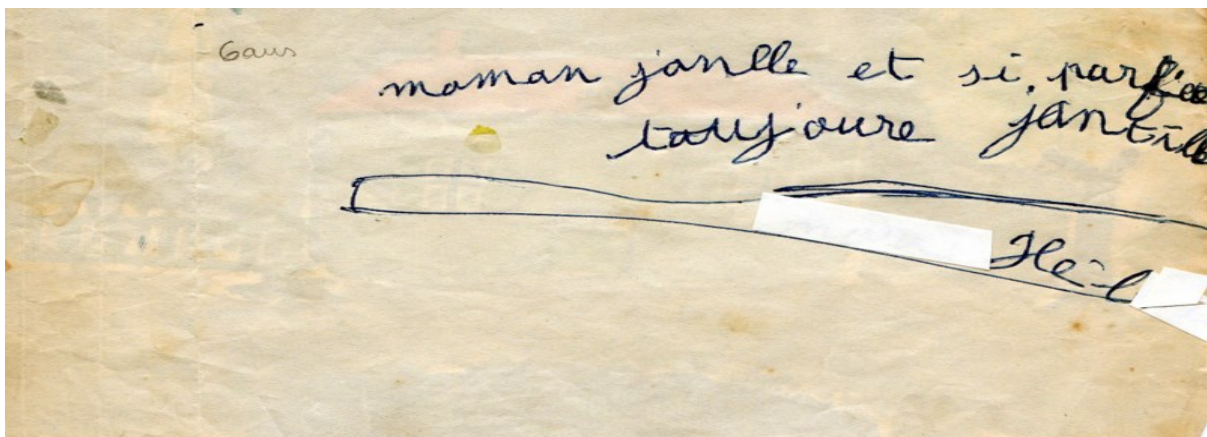 6 ans
moman jantlle et si parfoi
taujoure jantill
Hé-l